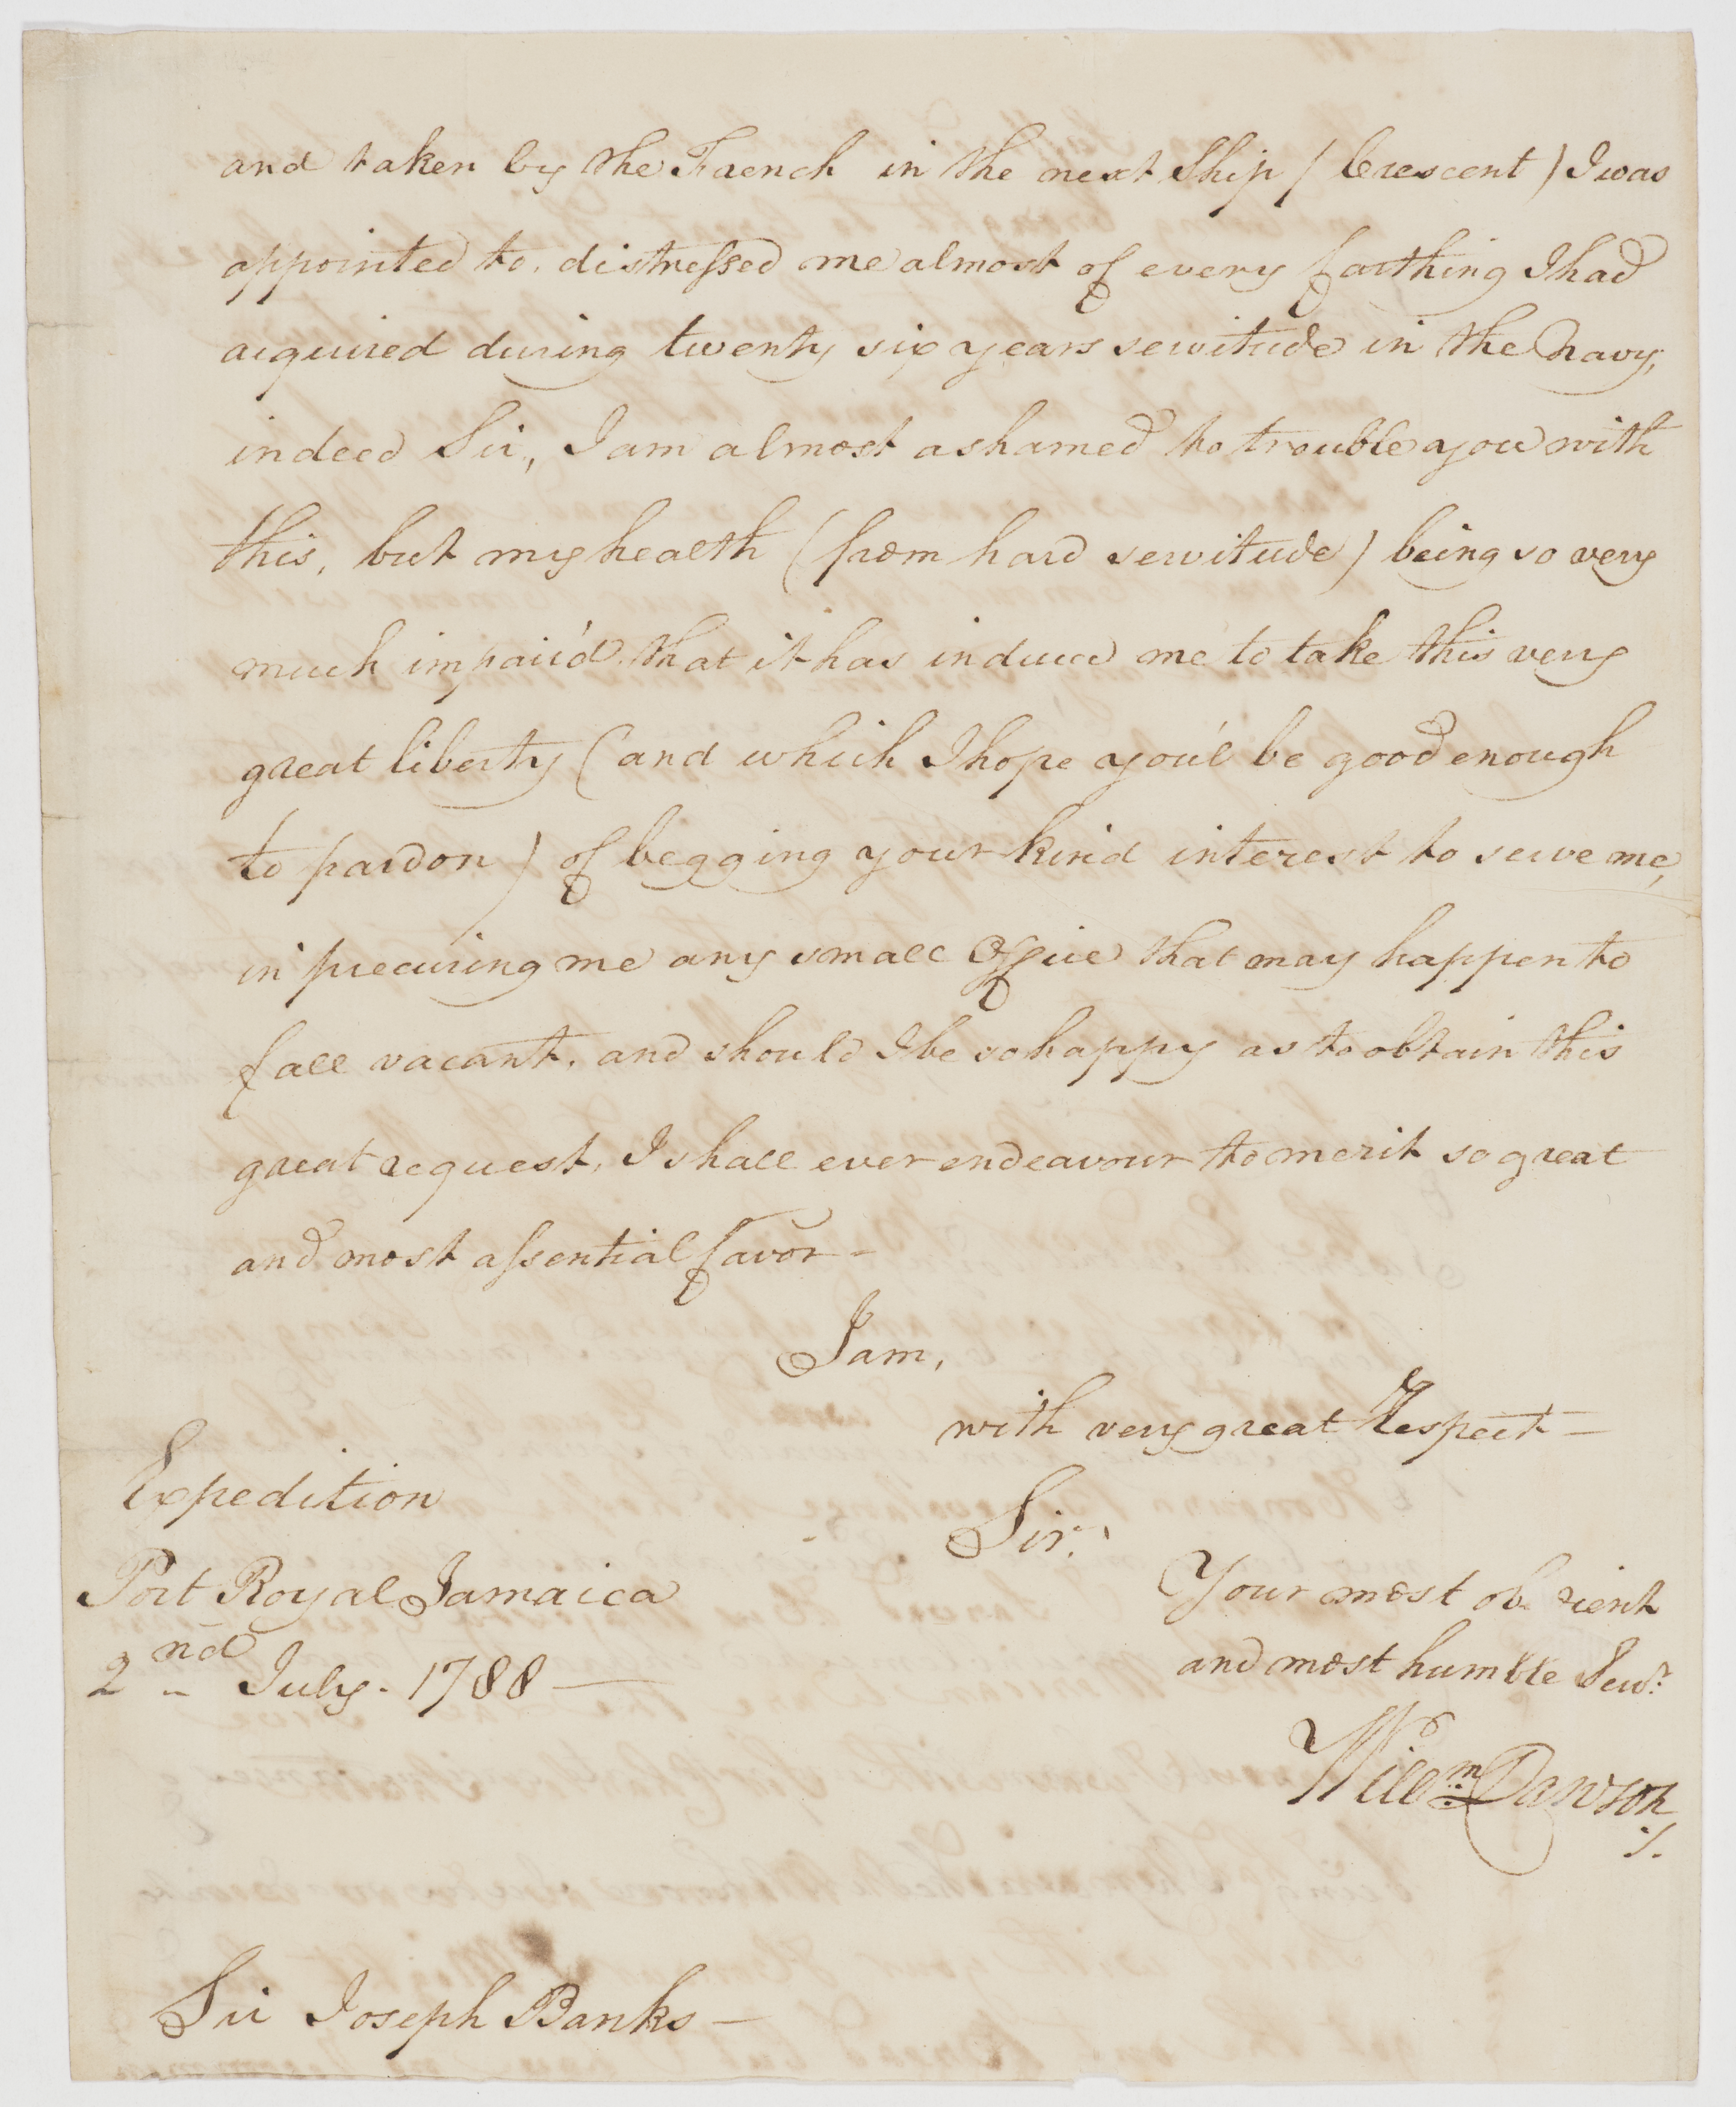 and taken by the French in the next Ship (Crescent) I was
appointed to, distreſsed me almost of every farthing I had
acquired during twenty six years servitude in the Navy,
indeed Sir, I am almost ashamed to trouble you with
this, but my health (from hard servitude) being so very
much impair'd, that it has induced me to take this very
great liberty (and which I hope you'l be good enough
to pardon) of begging your kind interest to serve me,
in procuring me any small Office that may happen to
fall vacant, and should I be so happy as to obtain this
great request, I shall ever endeavour to merit so great
and most aſsential favor –
I am,
with very great Respect –
Sir,
Your most obedient
and most humble Serv.t
Will.m Dawson
Expedition
Port Royal Jamaica
2nd July. 1788 –
Sir Joseph Banks –